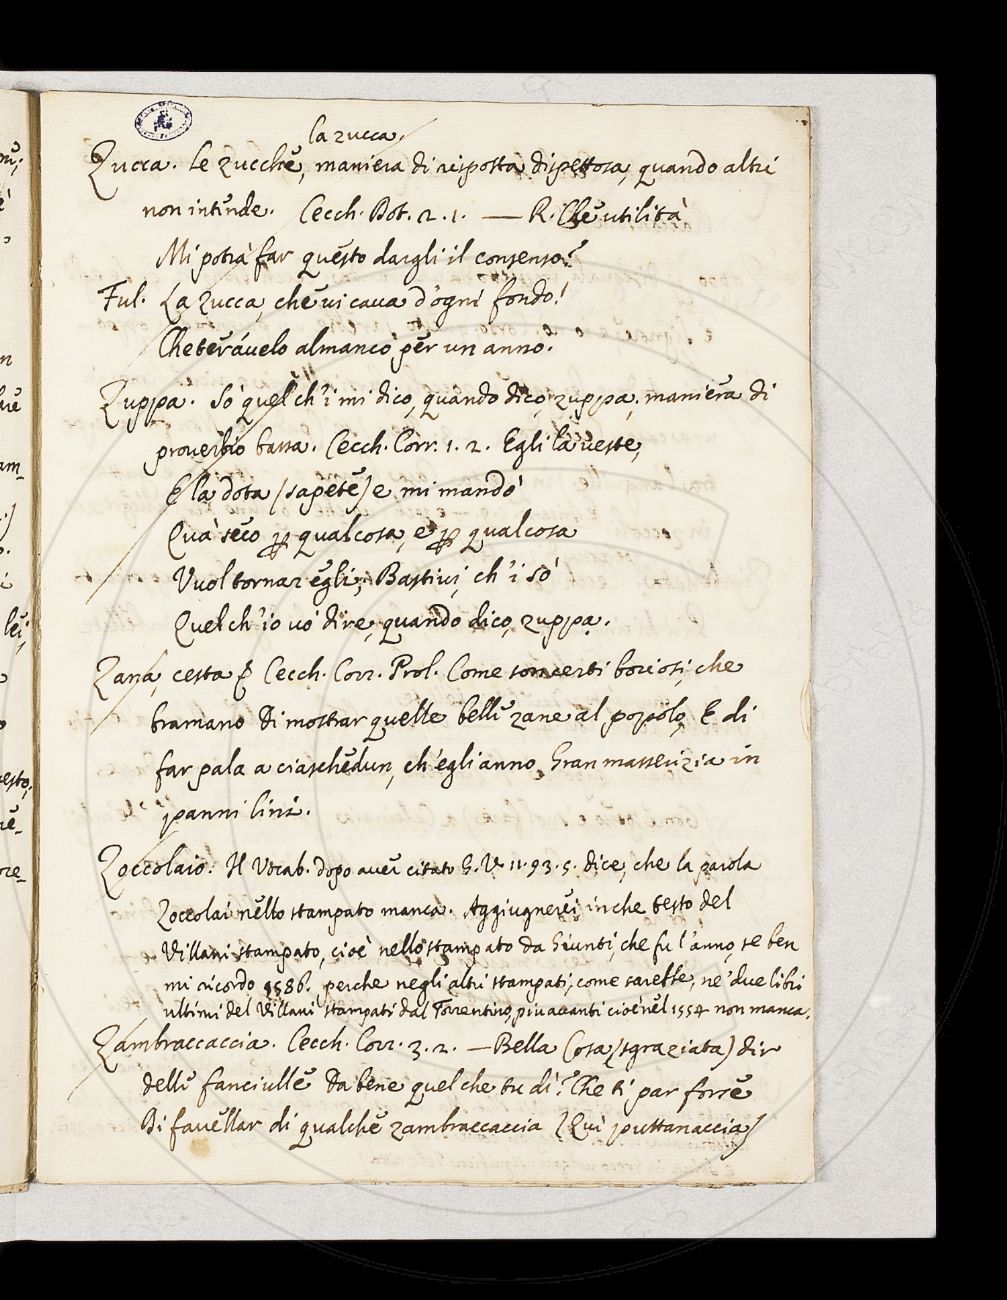 la zucca.
Zucca. Le Zucche, maniera di risposta dispettosa, quando altri
non intende. Cecch. Dot. 2. 1. — R. Che utilità
Mi potrà far questo dargli il consenso?
Ful. La Zucca, che vi cava d'ogni fondo!
Cheterávelo almanco per un anno.
Zuppa. Sò quel ch'i mi dico, quando dico, zuppa. maniera di
proverbio bassa. Cecch. Corr. 1. 2. Egli la veste,
E la dota (sapete) e mi mandò
Quà seco p qualcosa, e p qualcosa
Vuol tornar egli; Bastivi, ch'i sò
Quel ch'io vò dire, quando dico, zuppa.
Zana, cesta Cecch. Corr. Prol. Come son certi boriosi, che
bramano di mostrar quelle belle zane al popolo, E di
far pala a ciaschedun, ch'egli anno Gran masserizia in
panni lini.
Zoccolaio. Il Vocab. dopo aver citato G. V. 11. 93. 5. dice, che la parola
Zoccolai nello stampato manca. Aggiugnerei in che testo del
Villani stampato, cioè nello stampato da Giunti, che fu l'anno, se ben
mi ricordo 1586. perche negli altri stampati, come sarebbe, ne' due libri
ultimi del Villani stampati dal Torrentino, piu avanti cioè nel 1554 non manca.
Zambraccaccia. Cecch. Corr. 3. 2. — Bella Cosa (sgraziata) dir
delle fanciulle da bene quel che tu dì? Che ti par forse
Di favellar di qualche zambraccaccia [Quì puttanaccia]